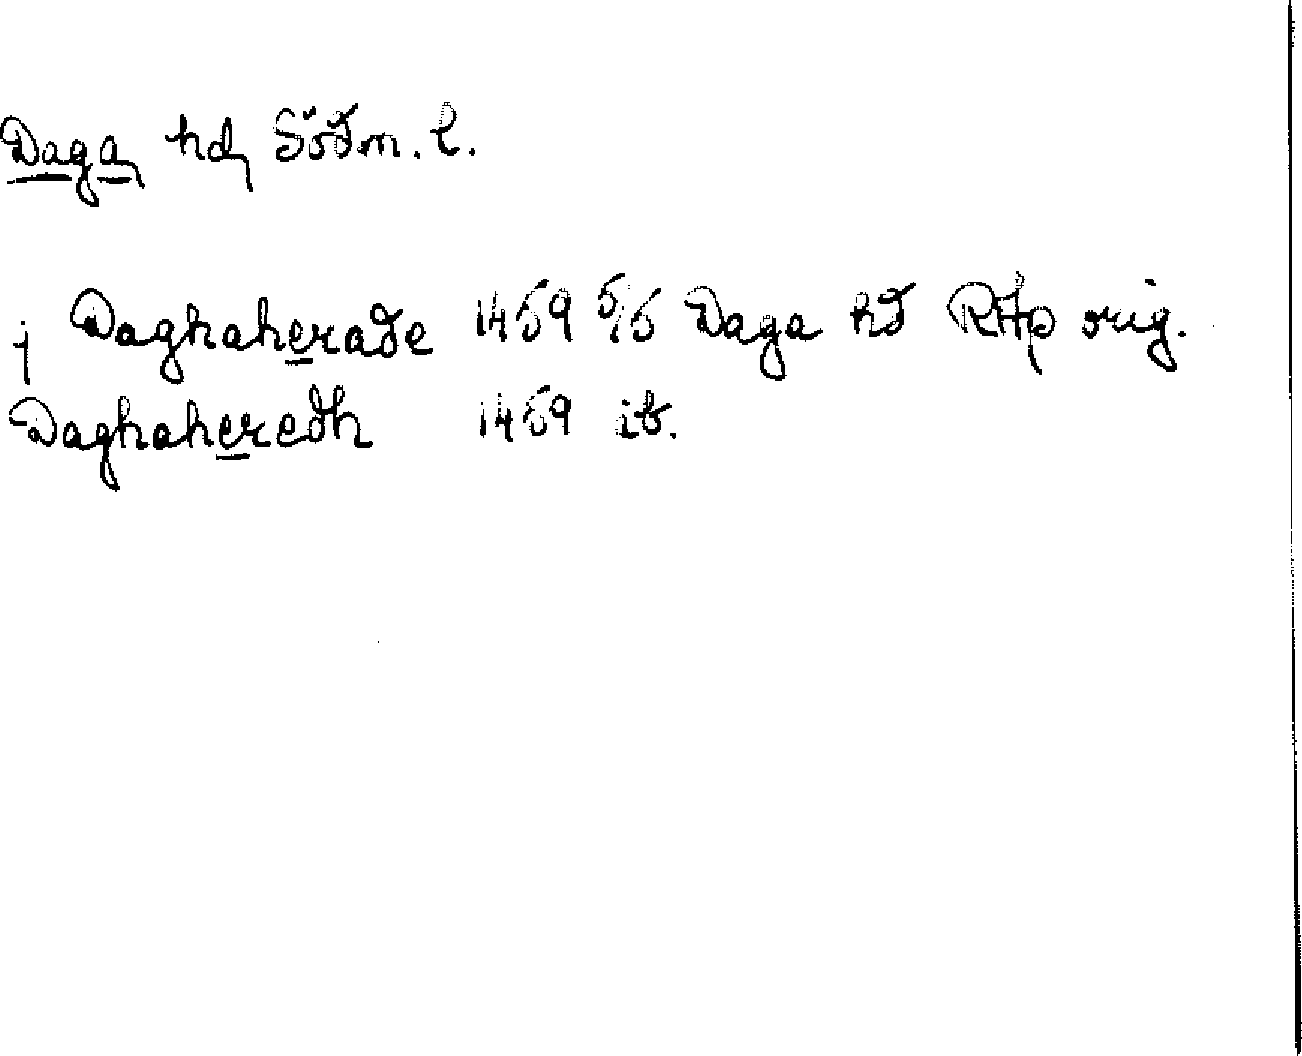 Daga hd, Södm. l.
j Daghaherade 1459 5/5 Daga hd RAp orig.
Daghaheredh 1459 ib.